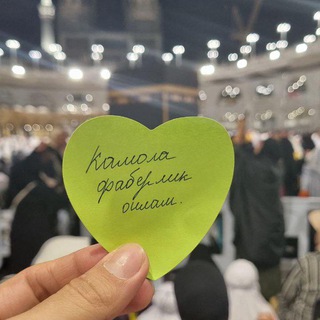 Камола
фаберлик
оилаш.